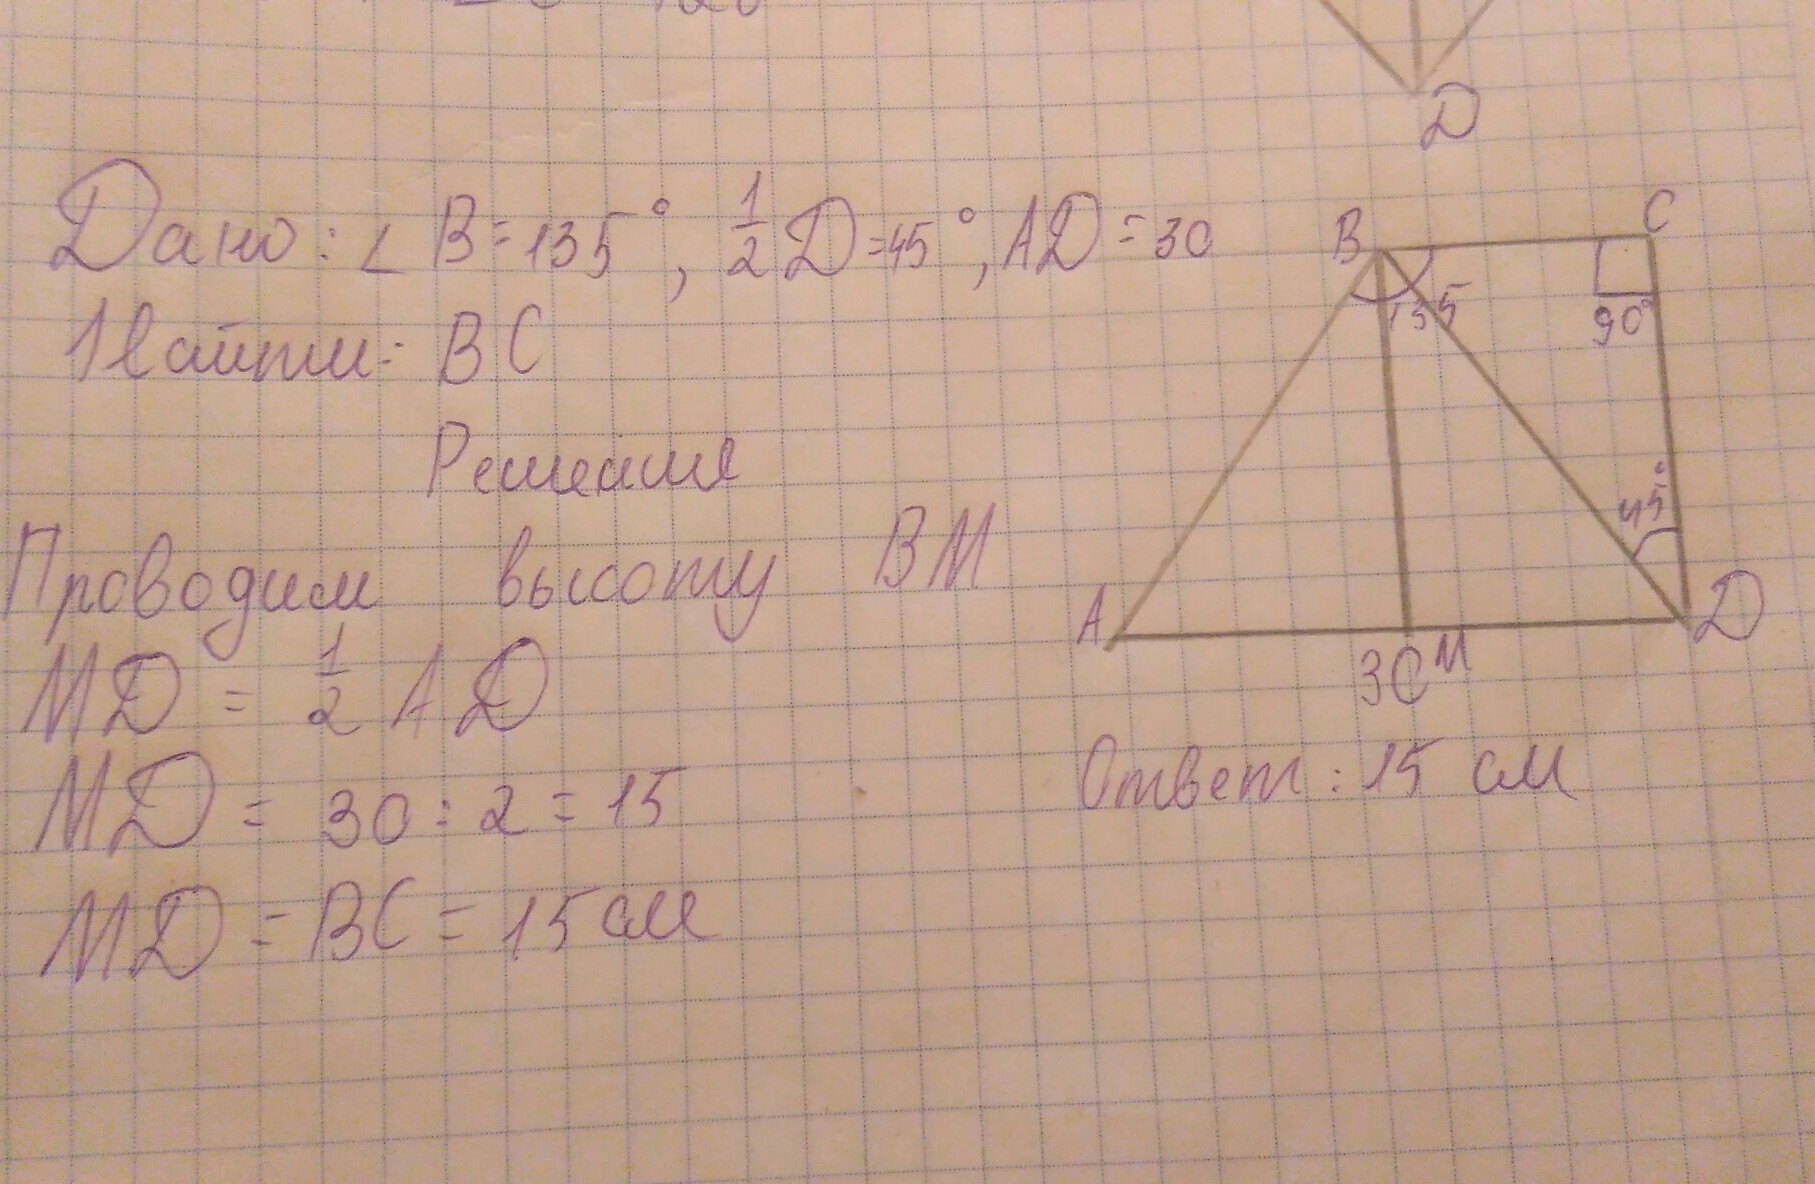 D
Дано: ∠ B = 135°, 1/2 D = 45°, AD = 30
Найти: BC
Решения
Проводим высоту BM
MD = 1/2 AD
MD = 30 : 2 = 15
MD = BC = 15 см
B
C
135
90°
45°
A
D
30
M
Ответ: 15 см